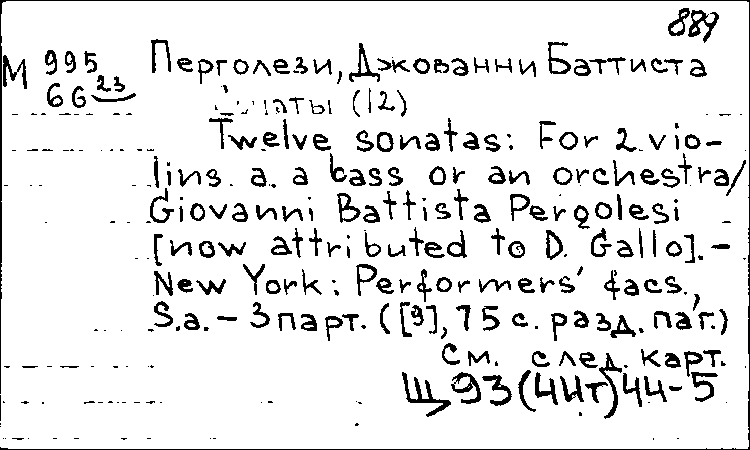 889
М 995 Перголези, Джованни Баттиста
66 23
Сонаты (12)
Twelve sonatas: For 2 vio-
lins a. a bass or an orchestra/
Giovanni Battista Pergolesi
[now attributed to D. Gallo]. -
New York: Performers' facs.,
S.a. - 3 парт. ([9], 75 с. разд. паг.)
См. след. карт.
Щ93(4Ит)44-5